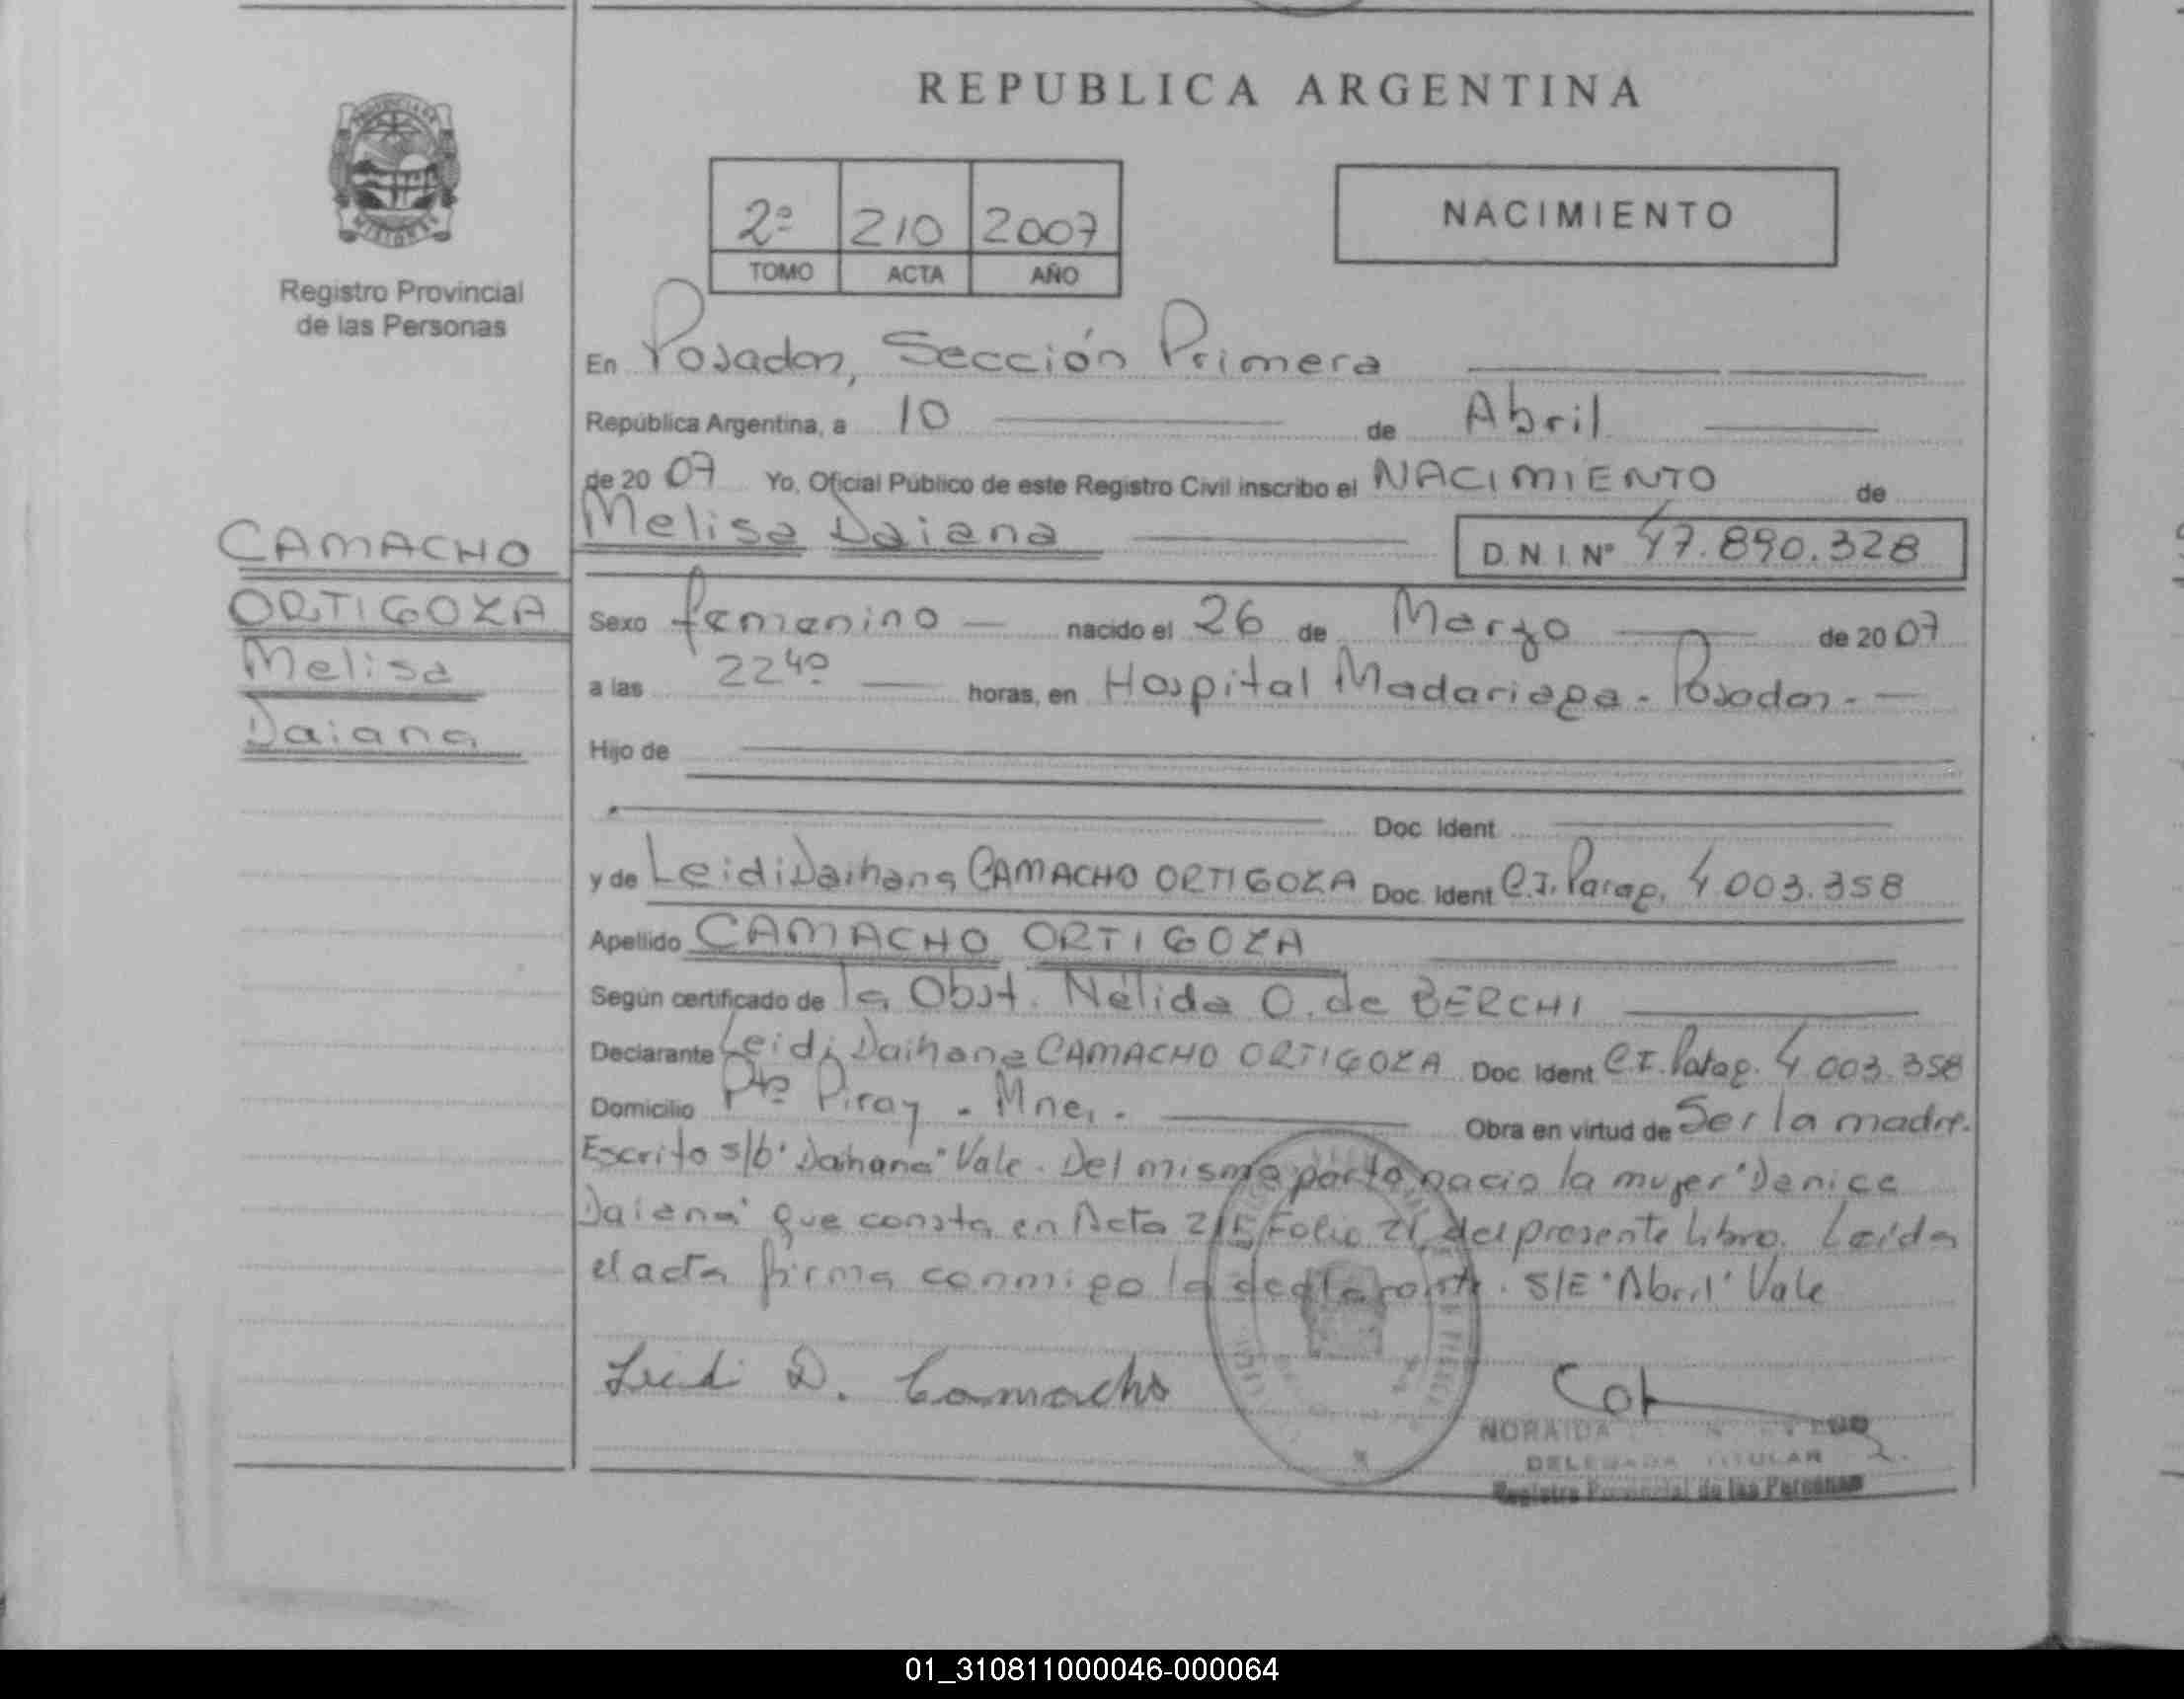 REPUBLICA ARGENTINA
2º 210 2007
TOMO ACTA AÑO
NACIMIENTO
PROVINCIA DE
MISIONES
Registro Provincial
de las Personas
En Posadas, Sección Primera
República Argentina, a 10 de Abril
de 20 07 Yo, Oficial Público de este Registro Civil inscribo el NACIMIENTO de
Melisa Daiana D.N.I. Nº 47.890.328
CAMACHO
ORTIGOZA
Melisa
Daiana
Sexo femenino nacido el 26 de Marzo de 20 07
a las 22 40 horas, en Hospital Madariaga - Posadas -
Hijo de
Doc. Ident.
y de Leidi Daihana CAMACHO ORTIGOZA Doc. Ident. C.I. Parag. 4 003.358
Apellido CAMACHO ORTIGOZA
Según certificado de la Obst. Nélida O. de BERCHI
Declarante Leidi Daihana CAMACHO ORTIGOZA Doc. Ident. C.I. Parag. 4 003.358
Domicilio Pto Piray - Mnes. Obra en virtud de Ser la madre.
Escrito s/b "Daihana" Vale. Del mismo parto nacio la mujer "Denice
Daiana" que consta en Acta 215 Folio 21 del presente libro. Leida
el acta firma conmigo la declarante. S/E "Abril" Vale
Leidi D. Camacho
NORAIDA
DELEGADA TITULAR
Registro Provincial de las Personas
01_310811000046-000064